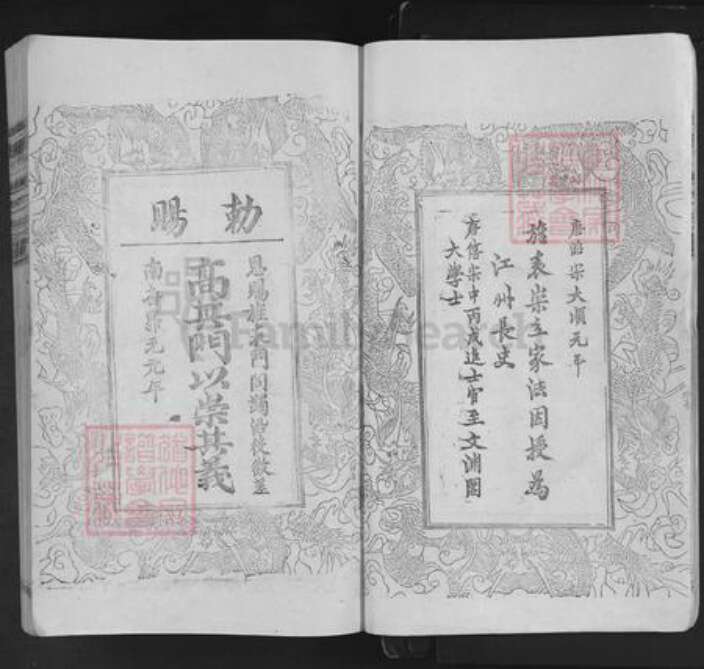 唐昭宗大順元年
旌表崇立家法因授為
江州長史
唐僖宗中丙戌進士官至文渊閣
大學士
勅賜
恩賜旌表門閭蠲
高其門以崇其義
南唐昇元元年
FamilySearch